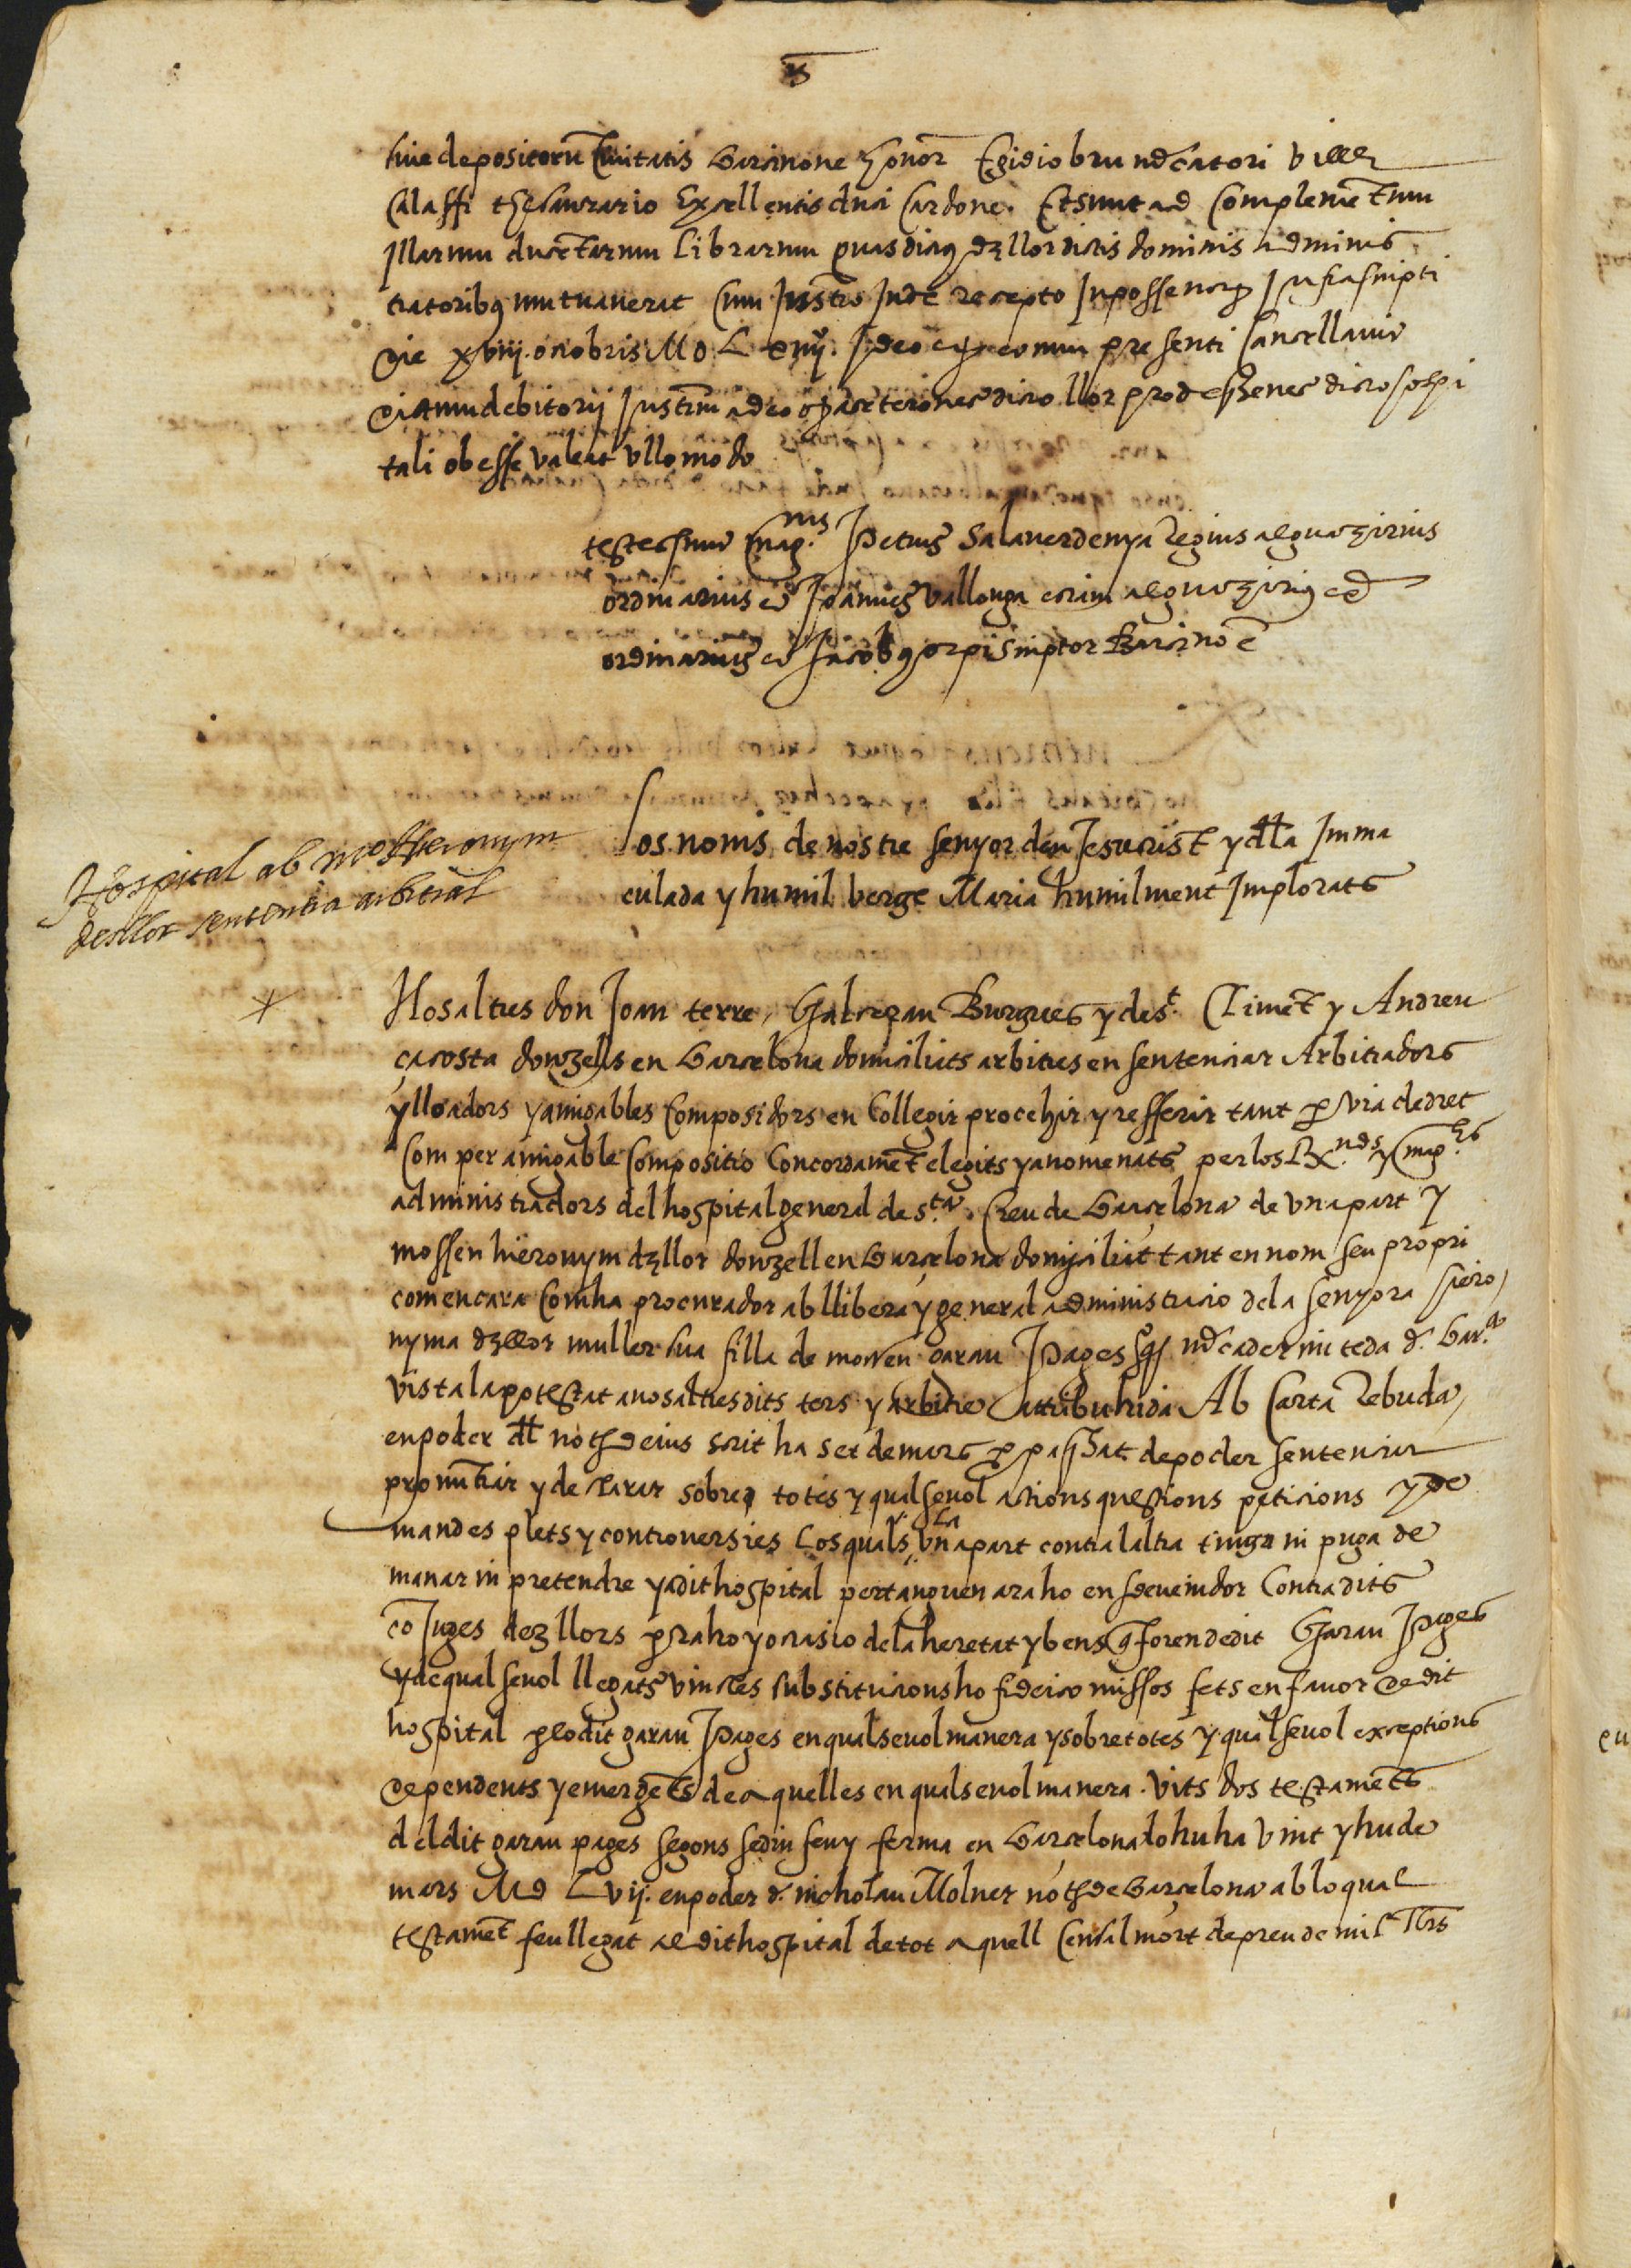 sive depositorũ Civitatis Barcinone honor Egidio bru mercatori ville
Calaffi thesaurario Excellentis duci Cardone. Et sunt ad Complemẽtum
Illarum ducẽtarum Librarum quas dictus dezllor dictis dominis adminis
tratoribus mutuaverat Cum Instro Inde recepto In posse nory Infrascripti
die xviiij. octobris MD L Ideo presenti Cancellavit
debitorij Instrm adeo ne dicto llor prodesse nec dicto hospi
tali obesse valeat ullo modo
testes sunt mag.cus Petrus Salaverdenya Regius alguazirius
ordinarius et Joannes Vallonga etiam alguazirius
ordinarius et Jacobus orpi scriptor Barcinoẽ
Hospital ab mo Hieronym
desllor sententia arbitral
Los noms de nostre senyor deu Jesucrist y dla Imma
culada y humil berge Maria humilment Implorats
Nosaltres don Joan terre, Galceran Burgues y de st. Climẽt y Andreu
çacosta donzells en Barcelona domiciliats arbitres en sentenciar Arbitradors
y lloadors y amigables Composidors en Collegir procehir y refferir tant p via de dret
Com per amigable Compositio Concordamẽt elegits y anomenats per los Rx.nds y mag.chs
administradors del hospital general de s.ta Creu de Barcelona de una part y
mossen hieronym dezllor donzell en Barcelona domiciliat tant en nom seu propri
com encara Com ha procurador ab llibera y general administracio de la senyora hiero
nyma dezllor muller sua filla de mossen garau Pages qº mercader ciuteda d. Bar.na
Vista la potestat a nosaltres dits ters y arbitre attribuhida Ab Carta Rebuda
en poder dl noth dejus scrit ha set de mars p passat de poder sentenciar
pronũtiar y declarar sobre totes y qualsevol actions questions peticions y de
mandes plets y controversies Los quals, la una part contra laltra tinga ni puga de
manar ni pretendre y a dit hospital pertanguen ara ho en sdevenidor Contra dits
cõjuges dezllors p raho y ocasio de la heretat y bens q foren de dit Garau Pages
y de qualsevol llegats vincles substitucions ho fideicomissos fets en favor de dit
hospital p lo dit garau Pages en qualsevol manera y sobre totes y qualsevol exceptions
dependents y emergẽts de aquelles en qualsevol manera. Vits dos testamẽts
del dit garau pages segons se diu feu y ferma en Barcelona lo hu ha vint y hu de
mars MD L vij. en poder d. nicholau Molner noth de Barcelona ab lo qual
testamẽt feu llegat al dit hospital de tot aquell Censal mort de preu de mil llrs